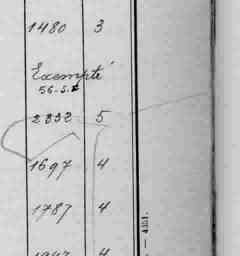 1480 3
Exempté
56-S.
2832 5
1697 4
1787 4
— 4351.